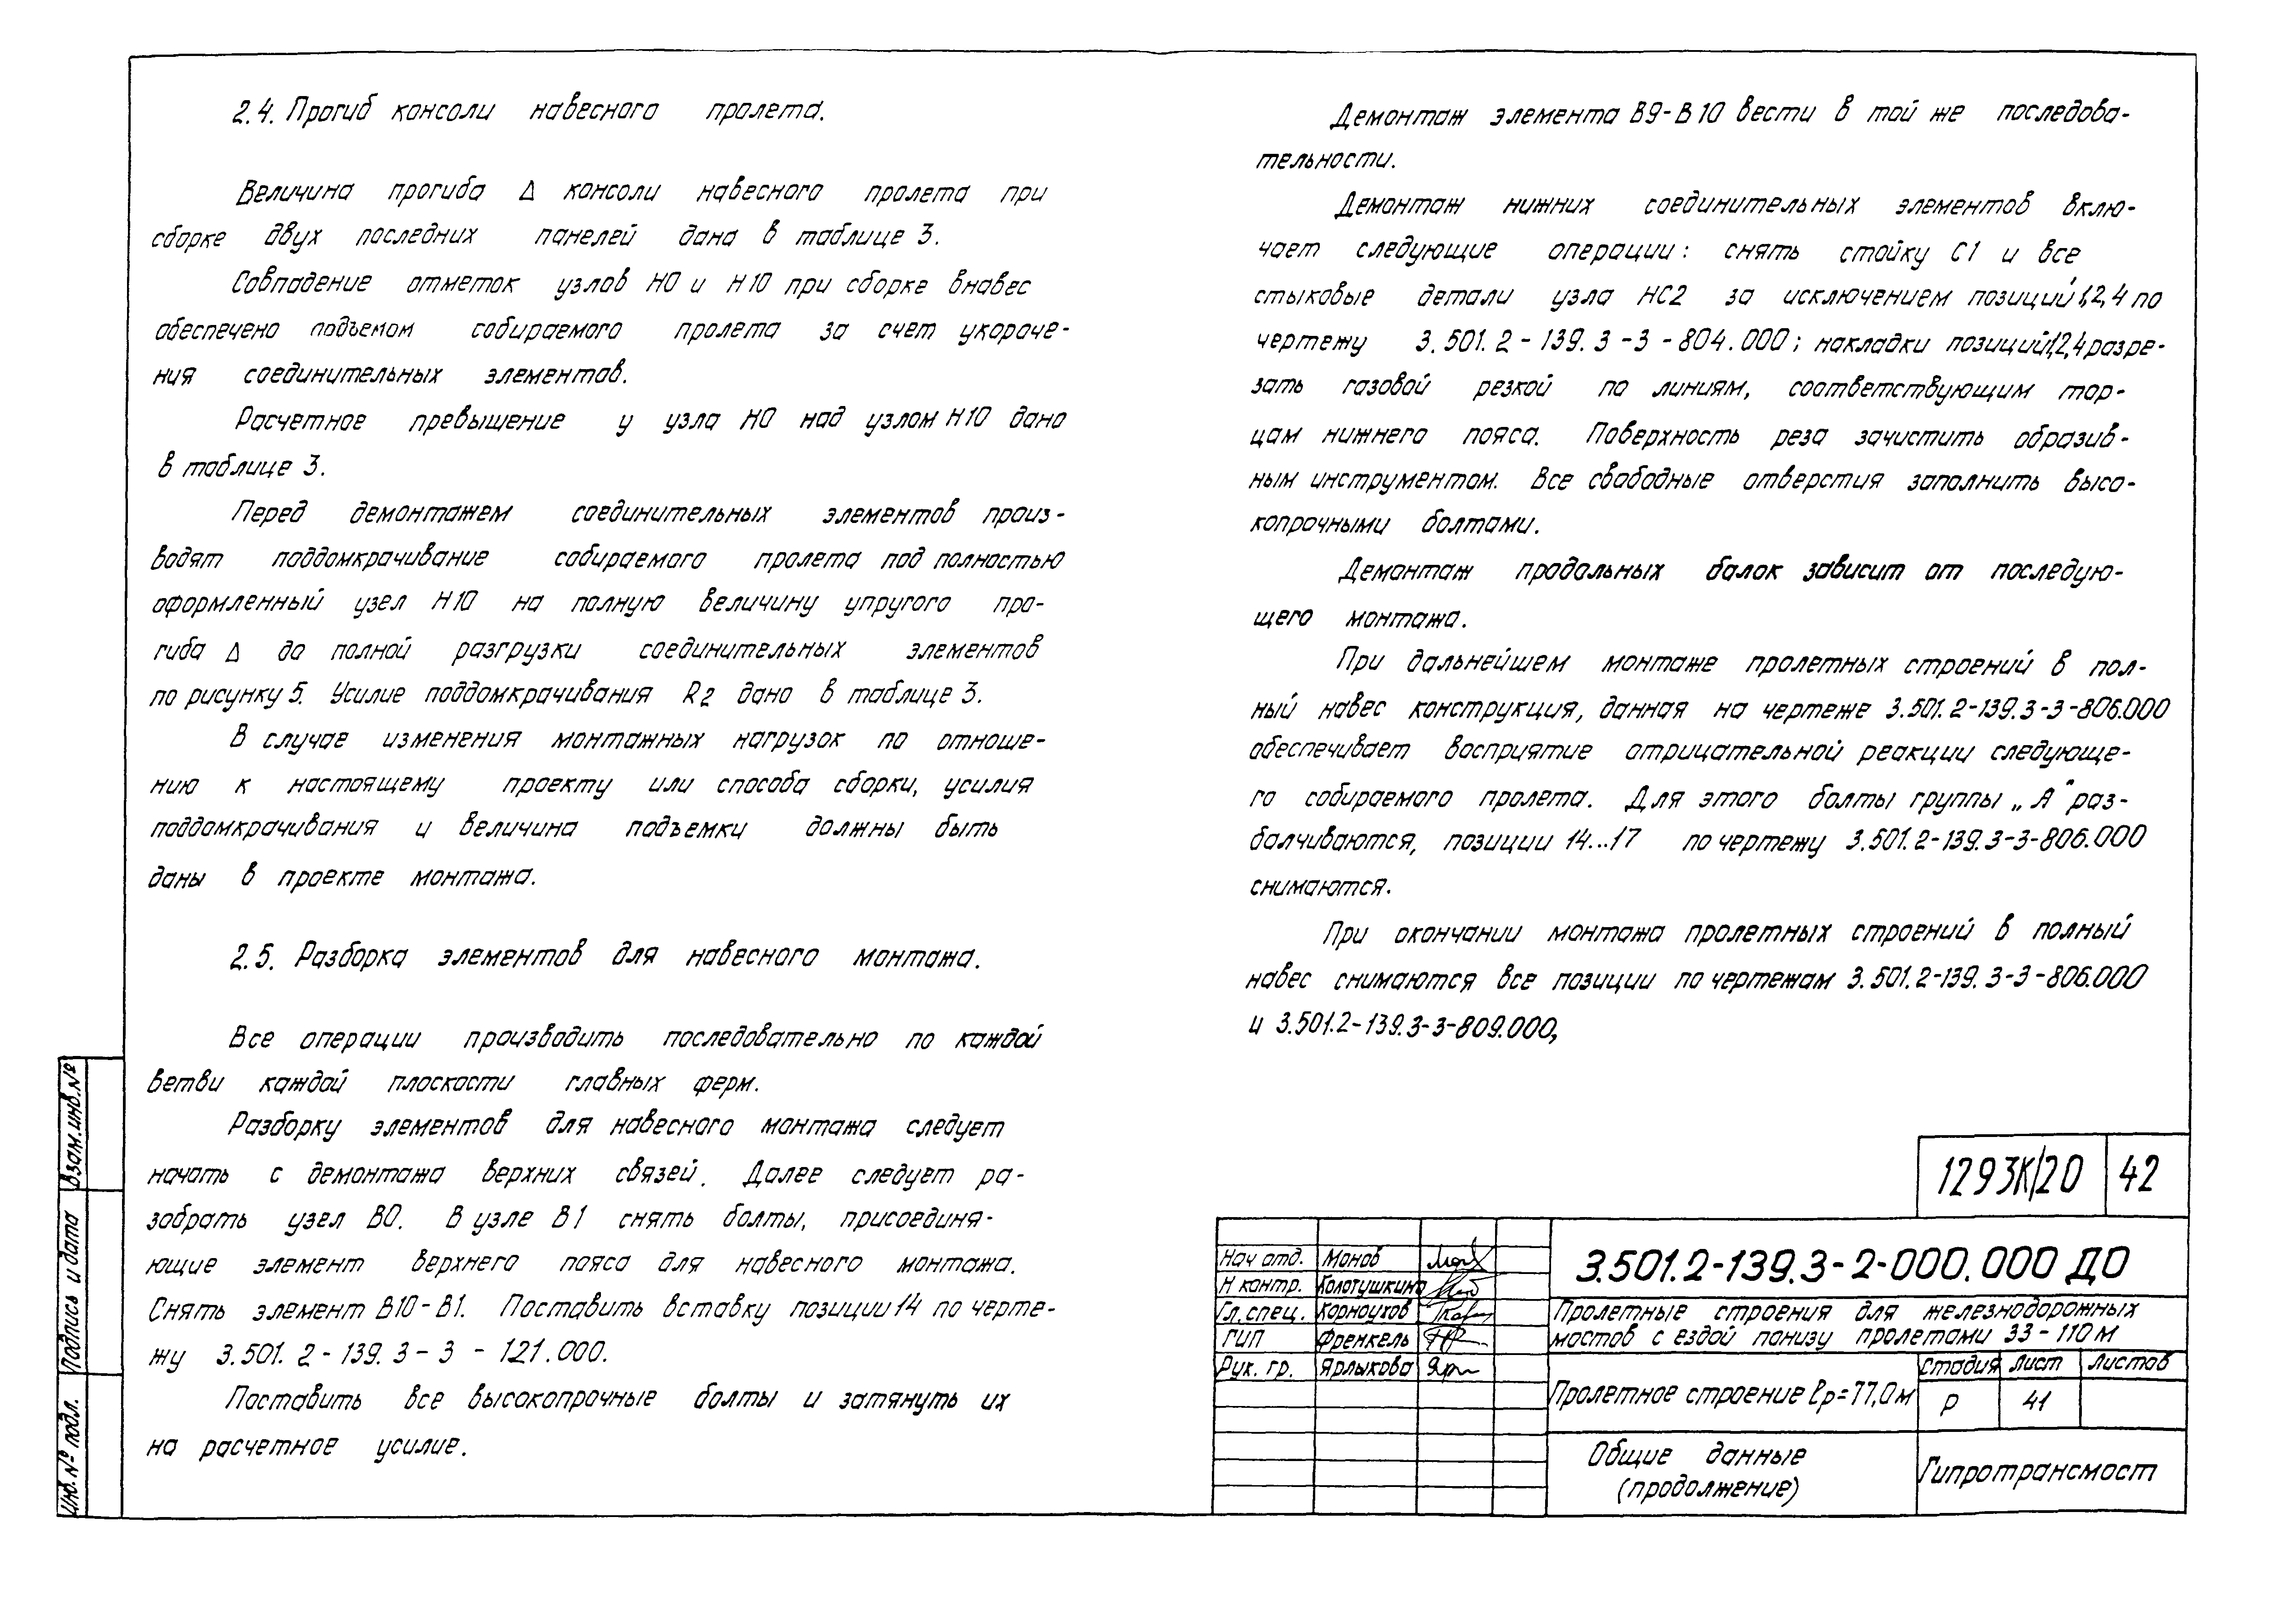 2.4. Прогиб консоли навесного пролета.
Величина прогиба Δ консоли навесного пролета при
сборке двух последних панелей дана в таблице 3.
Совпадение отметок узлов Н0 и Н10 при сборке внавес
обеспечено подъемом собираемого пролета за счет укораче-
ния соединительных элементов.
Расчетное превышение у узла Н0 над узлом Н10 дано
в таблице 3.
Перед демонтажем соединительных элементов произ-
водят поддомкрачивание собираемого пролета под полностью
оформленный узел Н10 на полную величину упругого про-
гиба Δ до полной разгрузки соединительных элементов
по рисунку 5. Усилие поддомкрачивания R2 дано в таблице 3.
В случае изменения монтажных нагрузок по отноше-
нию к настоящему проекту или способа сборки, усилия
поддомкрачивания и величина подъемки должны быть
даны в проекте монтажа.
2.5. Разборка элементов для навесного монтажа.
Все операции производить последовательно по каждой
ветви каждой плоскости главных ферм.
Разборку элементов для навесного монтажа следует
начать с демонтажа верхних связей. Далее следует ра-
зобрать узел В0. В узле В1 снять болты, присоединя-
ющие элемент верхнего пояса для навесного монтажа.
Снять элемент В10-В1. Поставить вставку позиции 14 по черте-
жу 3.501.2-139.3-3-121.000.
Поставить все высокопрочные болты и затянуть их
на расчетное усилие.
Демонтаж элемента В9-В10 вести в той же последова-
тельности.
Демонтаж нижних соединительных элементов вклю-
чает следующие операции: снять стойку С1 и все
стыковые детали узла НС2 за исключением позиций 1,2,4 по
чертежу 3.501.2-139.3-3-804.000; накладки позиций 1,2,4 разре-
зать газовой резкой по линиям, соответствующим тор-
цам нижнего пояса. Поверхность реза зачистить образив-
ным инструментом. Все свободные отверстия заполнить высо-
копрочными болтами.
Демонтаж продольных балок зависит от последую-
щего монтажа.
При дальнейшем монтаже пролетных строений в пол-
ный навес конструкция, данная на чертеже 3.501.2-139.3-3-806.000
обеспечивает восприятие отрицательной реакции следующе-
го собираемого пролета. Для этого болты группы „А" раз-
балчиваются, позиции 14...17 по чертежу 3.501.2-139.3-3-806.000
снимаются.
При окончании монтажа пролетных строений в полный
навес снимаются все позиции по чертежам 3.501.2-139.3-3-806.000
и 3.501.2-139.3-3-809.000,
Взам.инв.№
Подпись и дата
Инв.№ подл.
1293К/20 42
3.501.2-139.3-2-000.000 ДО
Нач отд. Монов
Н контр. Колотушкина
Гл.спец. Корноухов
ГИП Френкель
Рук. гр. Ярлыкова
Пролетные строения для железнодорожных
мостов с ездой понизу пролетами 33-110 м
Пролетное строение lр=77,0м
Стадия Лист Листов
Р 41
Общие данные
(продолжение)
Гипротрансмост